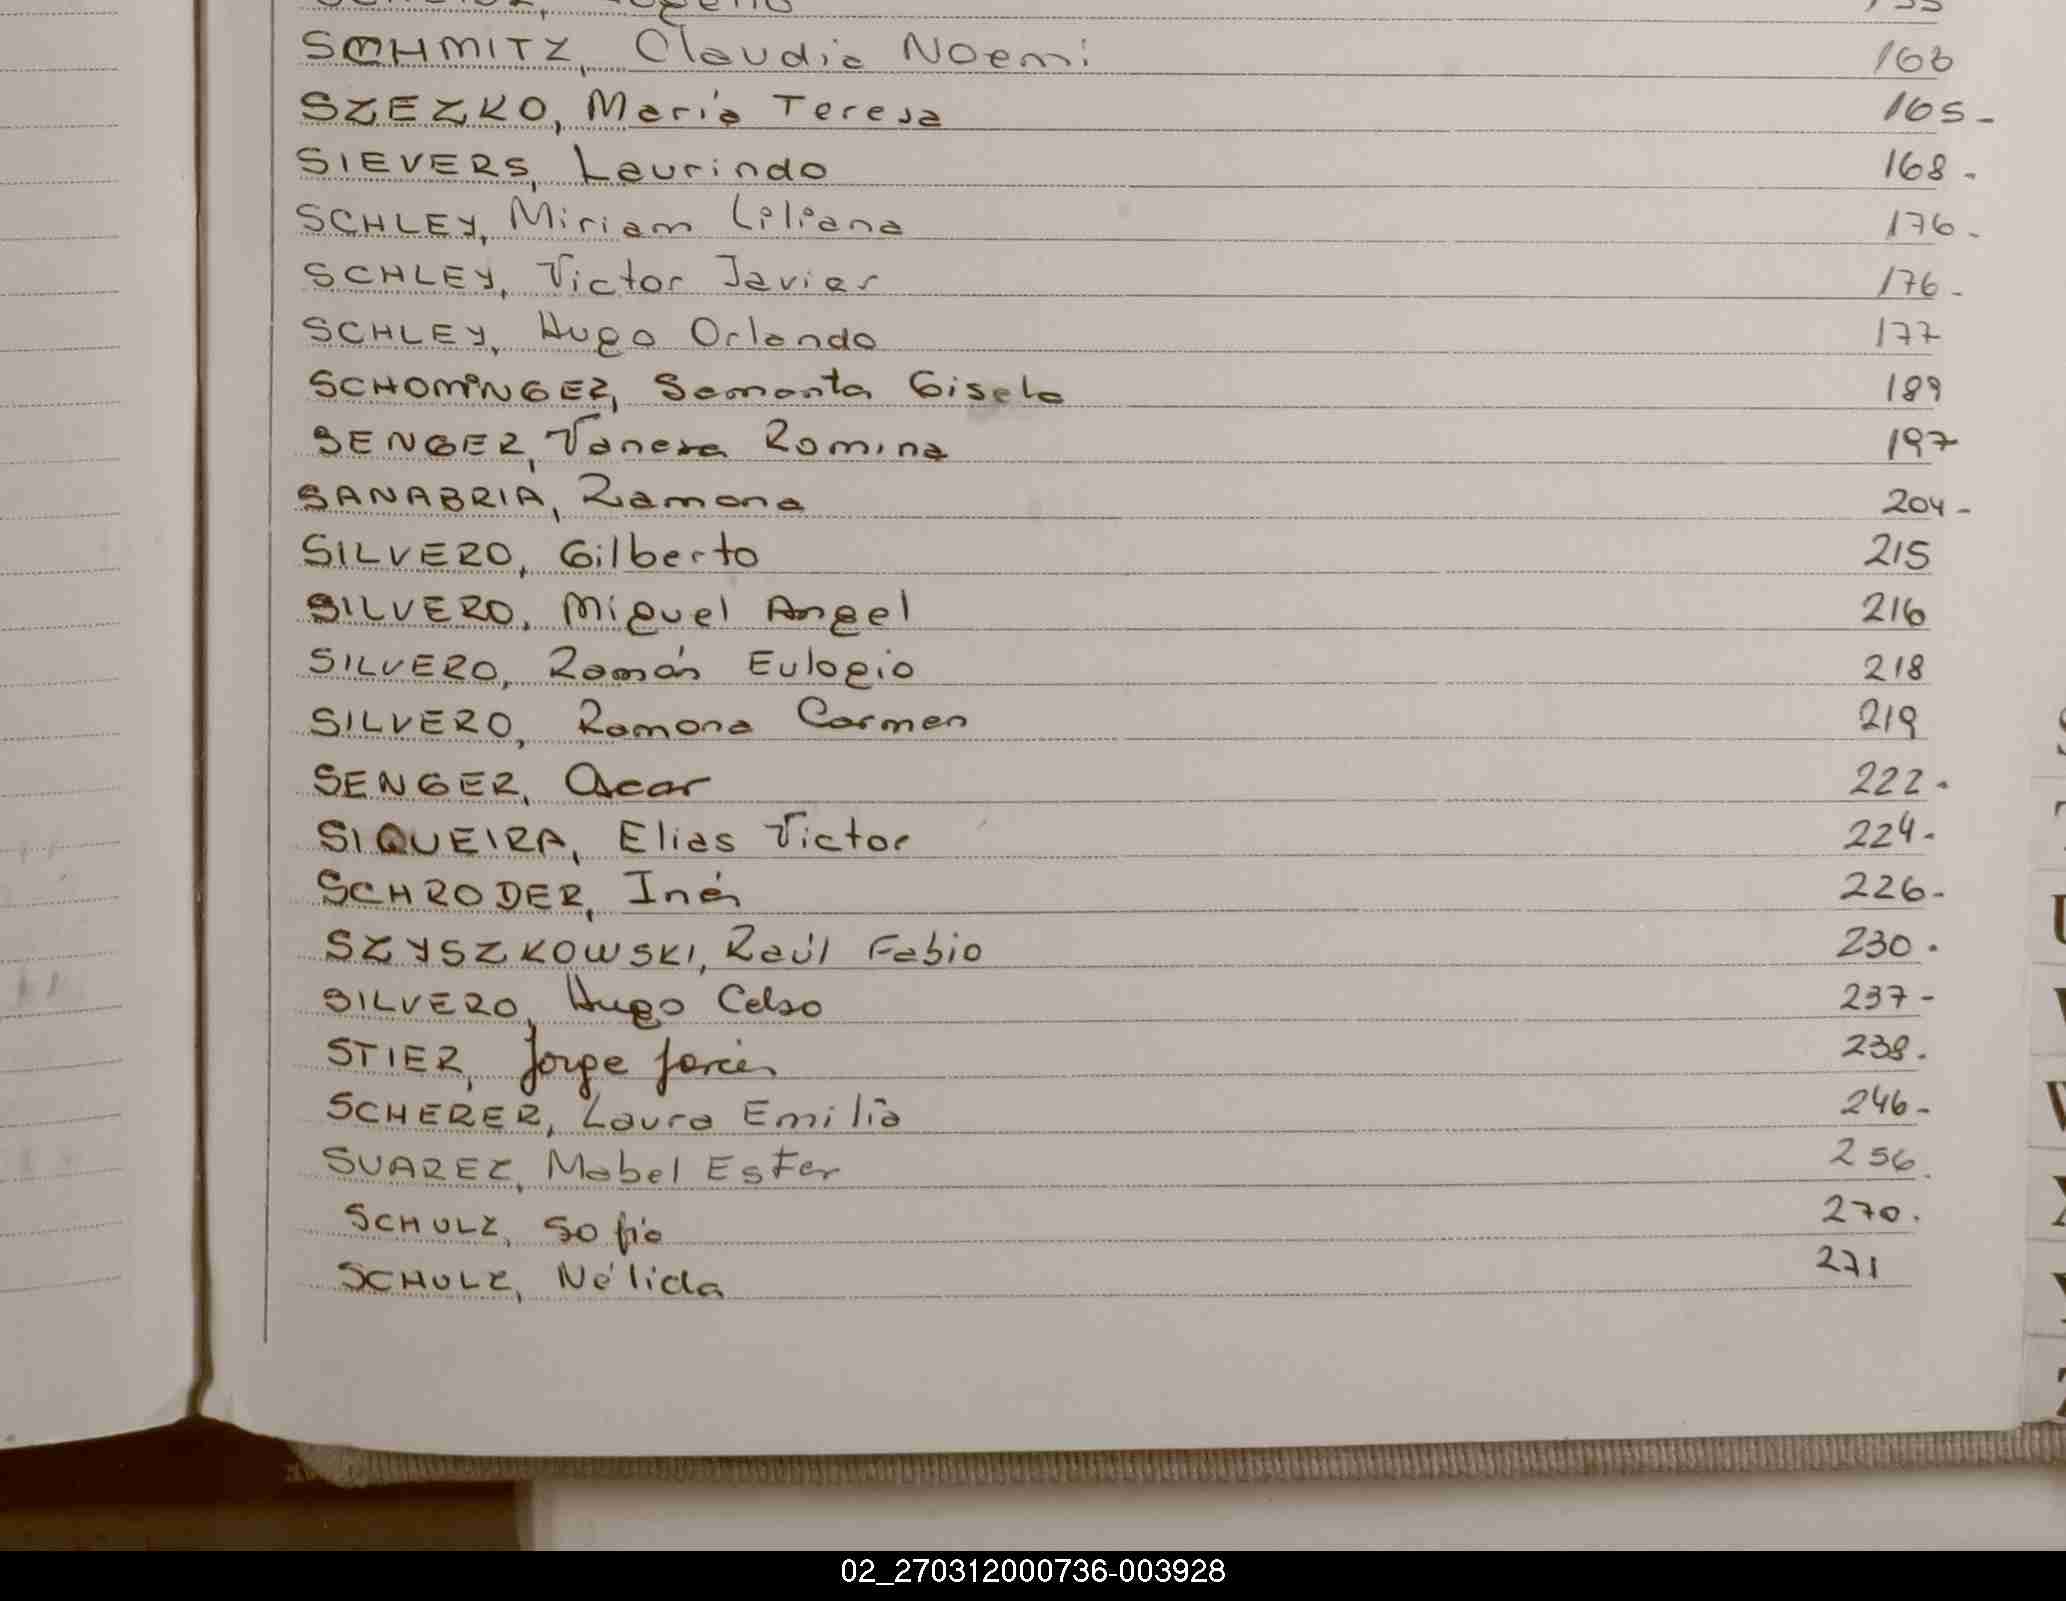 SCHMITZ, Claudia Noemi 163
SZEZKO, María Teresa 165-
SIEVERS, Laurindo 168-
SCHLEY, Miriam Liliana 176-
SCHLEY, Victor Javier 176-
SCHLEY, Hugo Orlando 177
SCHOMINGER, Samanta Gisela 189
SENGER, Vanesa Romina 197
SANABRIA, Ramona 204-
SILVERO, Gilberto 215
SILVERO, Miguel Angel 216
SILVERO, Román Eulogio 218
SILVERO, Ramona Carmen 219
SENGER, Oscar 222-
SIQUEIRA, Elias Victor 224-
SCHRODER, Inés 226-
SZYSZKOWSKI, Raúl Fabio 230.
SILVERO, Hugo Celso 237-
STIER, Jorge 238.
SCHERER, Laura Emilia 246-
SUAREZ, Mabel Ester 256.
SCHULZ, Sofia 270.
SCHULZ, Nélida 271
S
T
U
V
W
X
Y
Z
02_270312000736-003928